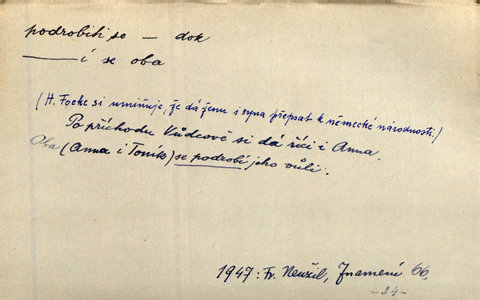 podrobiti se — dok
——— í se oba
(H. Focke si umiňuje, že dá ženu i syna přepsat k německé národnosti.)
Po příchodu Vůdcově si dá říci i Anna.
Oba (Anna i Toník) se podrobí jeho vůli.
1947: Fr. Neužil, Znamení 66.
- 24 -